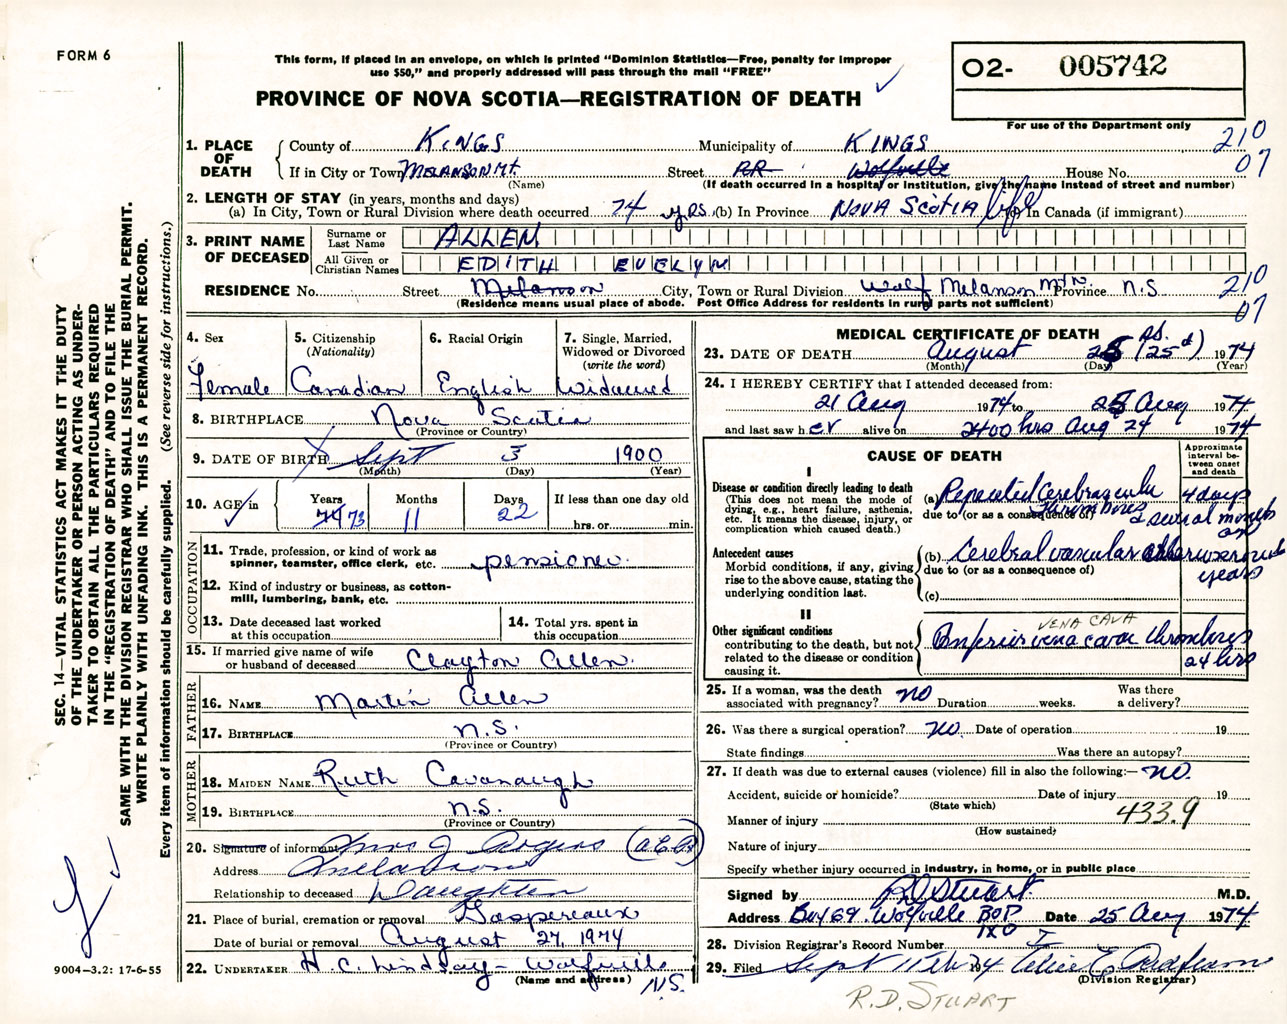 FORM 6
This form, if placed in an envelope, on which is printed "Dominion Statistics—Free, penalty for improper
use $50," and properly addressed will pass through the mail "FREE"
O2- 005742
PROVINCE OF NOVA SCOTIA—REGISTRATION OF DEATH
For use of the Department only
1. PLACE OF DEATH County of KINGS Municipality of KINGS 210
If in City or Town MELANSON Mt. Street RR Wolfville House No. 07
(Name) (If death occurred in a hospital or institution, give the name instead of street and number)
2. LENGTH OF STAY (in years, months and days)
(a) In City, Town or Rural Division where death occurred 74 yrs. (b) In Province NOVA SCOTIA life (c) In Canada (if immigrant)
3. PRINT NAME OF DECEASED Surname or Last Name ALLEN
All Given or Christian Names EDITH EVELYN
RESIDENCE No. Street Melanson City, Town or Rural Division Wolf Melanson Mtn. Province N.S 210
(Residence means usual place of abode. Post Office Address for residents in rural parts not sufficient) 07
4. Sex 5. Citizenship (Nationality) 6. Racial Origin 7. Single, Married, Widowed or Divorced (write the word)
Female Canadian English Widowed
8. BIRTHPLACE Nova Scotia
(Province or Country)
9. DATE OF BIRTH Sept 3 1900
(Month) (Day) (Year)
10. AGE in Years Months Days If less than one day old
74 73 11 22 hrs. or min.
OCCUPATION
11. Trade, profession, or kind of work as
spinner, teamster, office clerk, etc. pensioner
12. Kind of industry or business, as cotton-
mill, lumbering, bank, etc.
13. Date deceased last worked at this occupation
14. Total yrs. spent in this occupation
15. If married give name of wife
or husband of deceased Clayton Allen.
FATHER
16. NAME Martin Allen
17. BIRTHPLACE N.S.
(Province or Country)
MOTHER
18. MAIDEN NAME Ruth Cavanaugh
19. BIRTHPLACE N.S.
(Province or Country)
20. Signature of informant Mrs J. Rogers
Address Melanson
Relationship to deceased Daughter
21. Place of burial, cremation or removal Gaspereaux
Date of burial or removal August 27, 1974
22. UNDERTAKER H. C. Lindsay - Wolfville N.S.
(Name and address)
MEDICAL CERTIFICATE OF DEATH
23. DATE OF DEATH August 25 (25th) 1974
(Month) (Day) (Year)
24. I HEREBY CERTIFY that I attended deceased from:
21 Aug 1974 to 25 Aug 1974
and last saw her alive on 2400 hrs Aug 24 1974
CAUSE OF DEATH
Approximate interval between onset and death
I
Disease or condition directly leading to death
(This does not mean the mode of
dying, e.g., heart failure, asthenia,
etc. It means the disease, injury, or
complication which caused death.)
(a) Repeated Cerebrovascular Thromboses 4 days
due to (or as a consequence of) several months
Antecedent causes
Morbid conditions, if any, giving
rise to the above cause, stating the
underlying condition last.
(b) Cerebral vascular years
due to (or as a consequence of)
(c)
II
Other significant conditions
contributing to the death, but not
related to the disease or condition
causing it.
VENA CAVA
Inferior vena cava thromboses
24 hrs
25. If a woman, was the death
associated with pregnancy? NO Duration weeks. Was there a delivery?
26. Was there a surgical operation? NO. Date of operation 19
State findings Was there an autopsy?
27. If death was due to external causes (violence) fill in also the following:— NO.
Accident, suicide or homicide? Date of injury 19
(State which)
Manner of injury 433.9
(How sustained)
Nature of injury
Specify whether injury occurred in industry, in home, or in public place
Signed by RD Stuart M.D.
Address Box 69 Wolfville BOP 1X0 Date 25 Aug 1974
28. Division Registrar's Record Number
29. Filed Sept 11th 1974
(Division Registrar)
R.D. STUART
SEC. 14—VITAL STATISTICS ACT MAKES IT THE DUTY
OF THE UNDERTAKER OR PERSON ACTING AS UNDER-
TAKER TO OBTAIN ALL THE PARTICULARS REQUIRED
IN THE "REGISTRATION OF DEATH" AND TO FILE THE
SAME WITH THE DIVISION REGISTRAR WHO SHALL ISSUE THE BURIAL PERMIT.
WRITE PLAINLY WITH UNFADING INK. THIS IS A PERMANENT RECORD.
Every item of information should be carefully supplied. (See reverse side for instructions.)
9004—3.2: 17-6-55